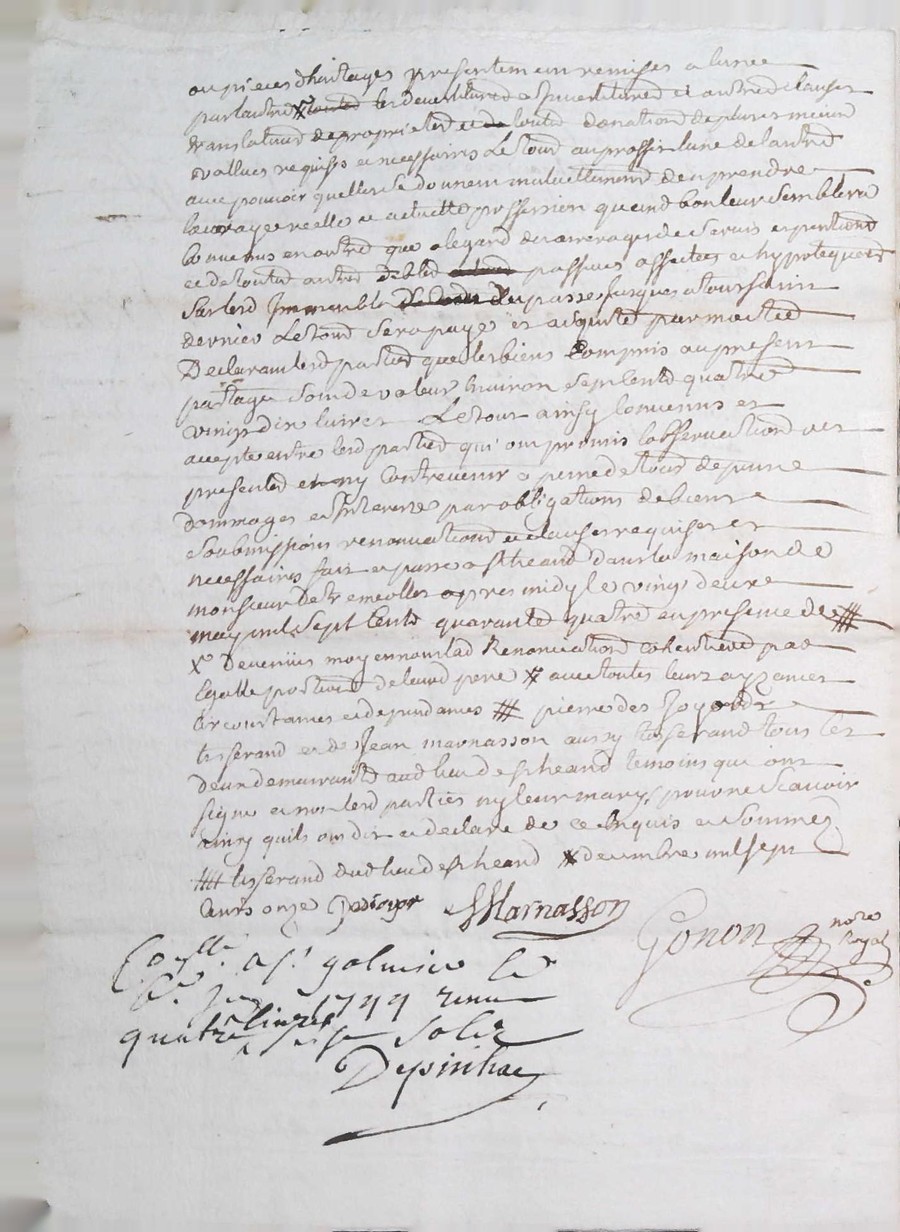 ou pieces d'heritages presentement remises a lunee
par lautre X toutes les devestitures et investitures et autres clauses
translatives de proprietes et de toute donation de plus et mieux
vallues requises et necessaires Le tout au proffit lune de lautre
avec pouvoir quelles se donnent mutuellement den prendre
la vraye reelle et actuelle possession quand bon leur semblera
Convenus en outre que a legard des arrerages de servis et pentions
et de toutes autres debtes passives affectees et hypotequees
sur lesd Immeuble du passe jusques a toussaint
dernier Le tout sera paye et acquitte par moitied
Declarant lesd parties que les biens Compris au present
partage sont de valeur Environ sept Cents quatre
vingt dix livres Le tout ainsy Convenus et
accepte entre lesd parties qui ont promis lobservation des
presentes et ny Contrevenir a peine de tous depens
dommages et Interets par obligations de biens
soubmissions renonciations et clauses requises et
necessaires fait et passe a st heand dans la maison de
monsieur de tremeolles apres midy le vingt deux
may mil sept Cents quarante quatre en presence de #
X Devenus moyennant lad Renonciation Cohéritiere par
Egalle portion de leurd pere X avec toutes leurs aysances
circonstances et dependances # pierre des Joyaux
tisserand et de Jean marnasson aussy tisserand tous les
deux demeurants aud lieu de st heand temoins qui ont
signe et non lesd parties ny leur marys pour ne scavoir
ainsy quils ont dit et declare de ce Enquis et sommes
# tisserand dud lieu de st heand X decembre mil sept
Cents onze Marnasson
Gonon nore
Royal
Conlle a st galmier le
1744 receu
quatre livres sols
Depinhac